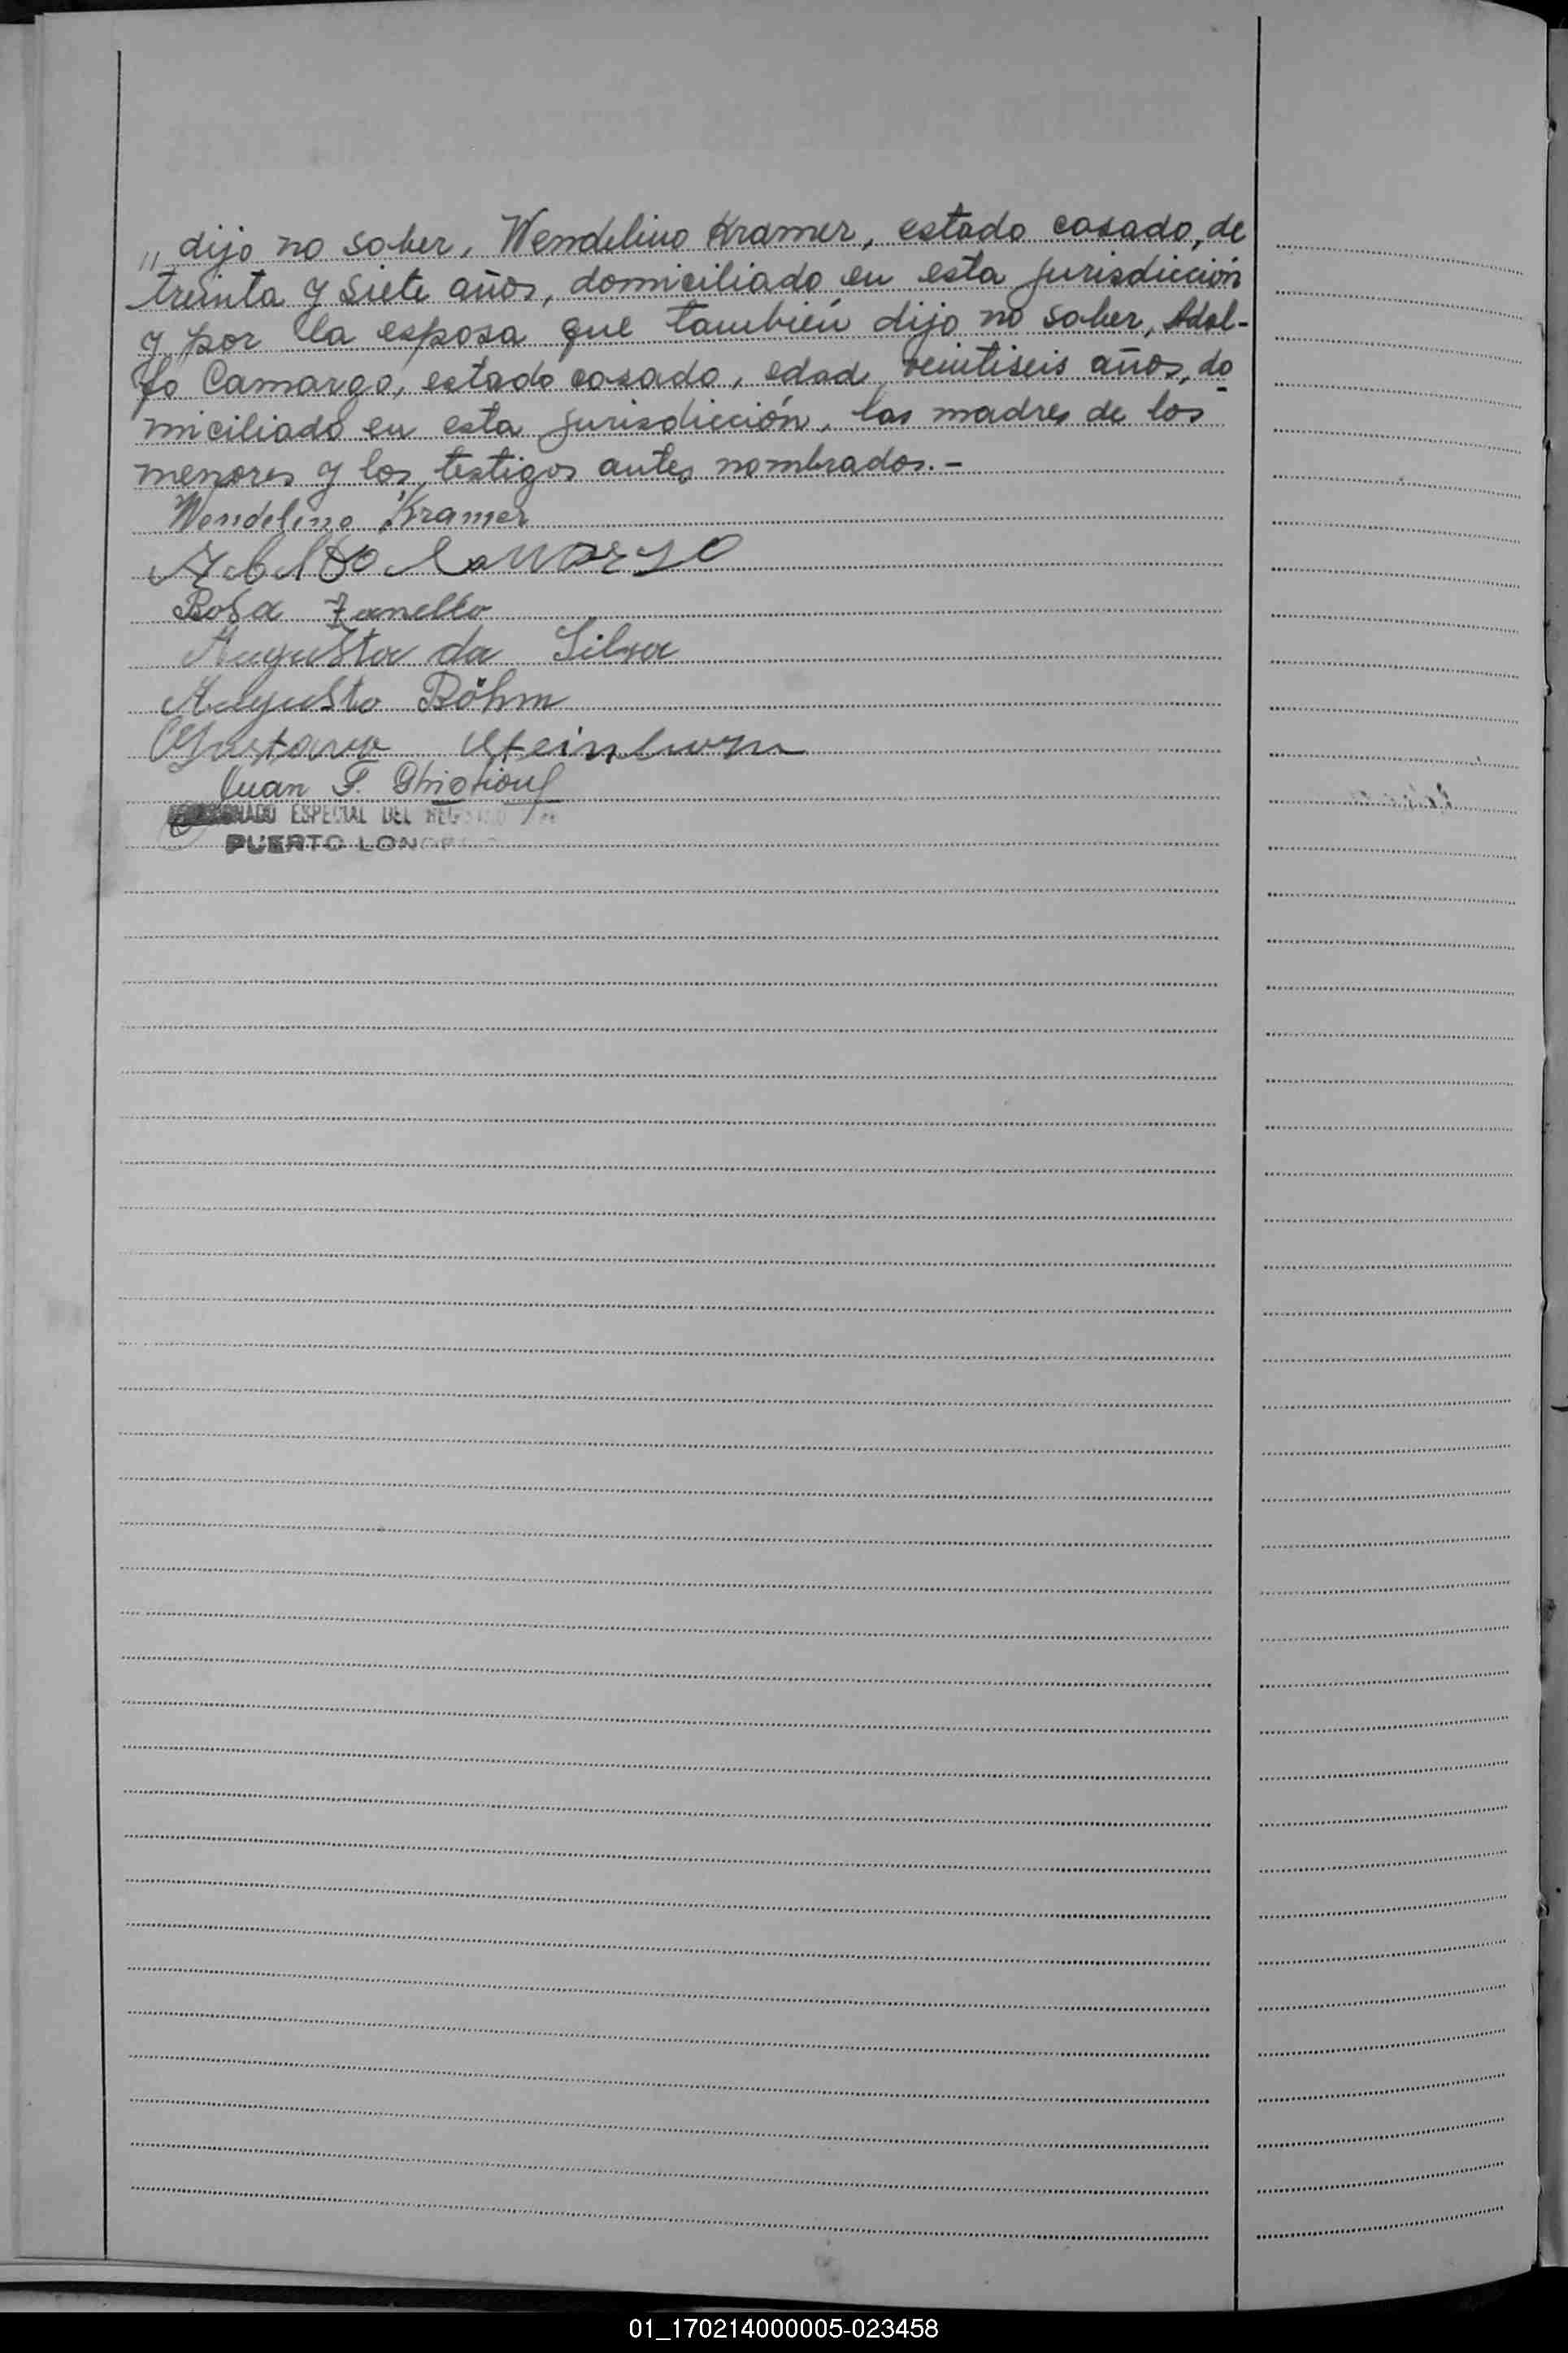 „ dijo no saber, Wendelino Kramer, estado casado, de
treinta y siete años, domiciliado en esta jurisdicción
y por la esposa que también dijo no saber, Adol-
fo Camargo, estado casado, edad veintiseis años, do
miciliado en esta jurisdicción, las madres de los
menores y los testigos antes nombrados.-
Wendelino Kramer
Rosa Zanello
Augusta da Silva
Augusto Böhm
Gustavo
Juan F.
ESPECIAL DEL
PUERTO
01_170214000005-023458